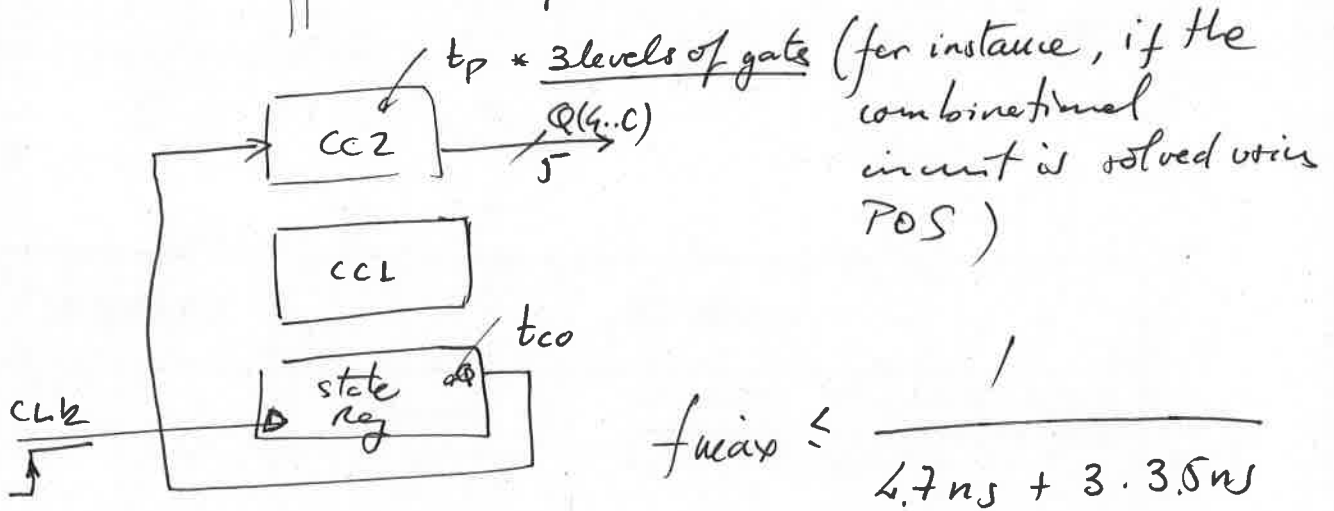 tp * 3 levels of gates (for instance, if the
combinational
circuit is solved using
POS)
CC2
Q(4..0)
5
CC1
tco
state
reg
Q
CLK
fmax ≤
1
4.7 ns + 3 · 3.5 ns